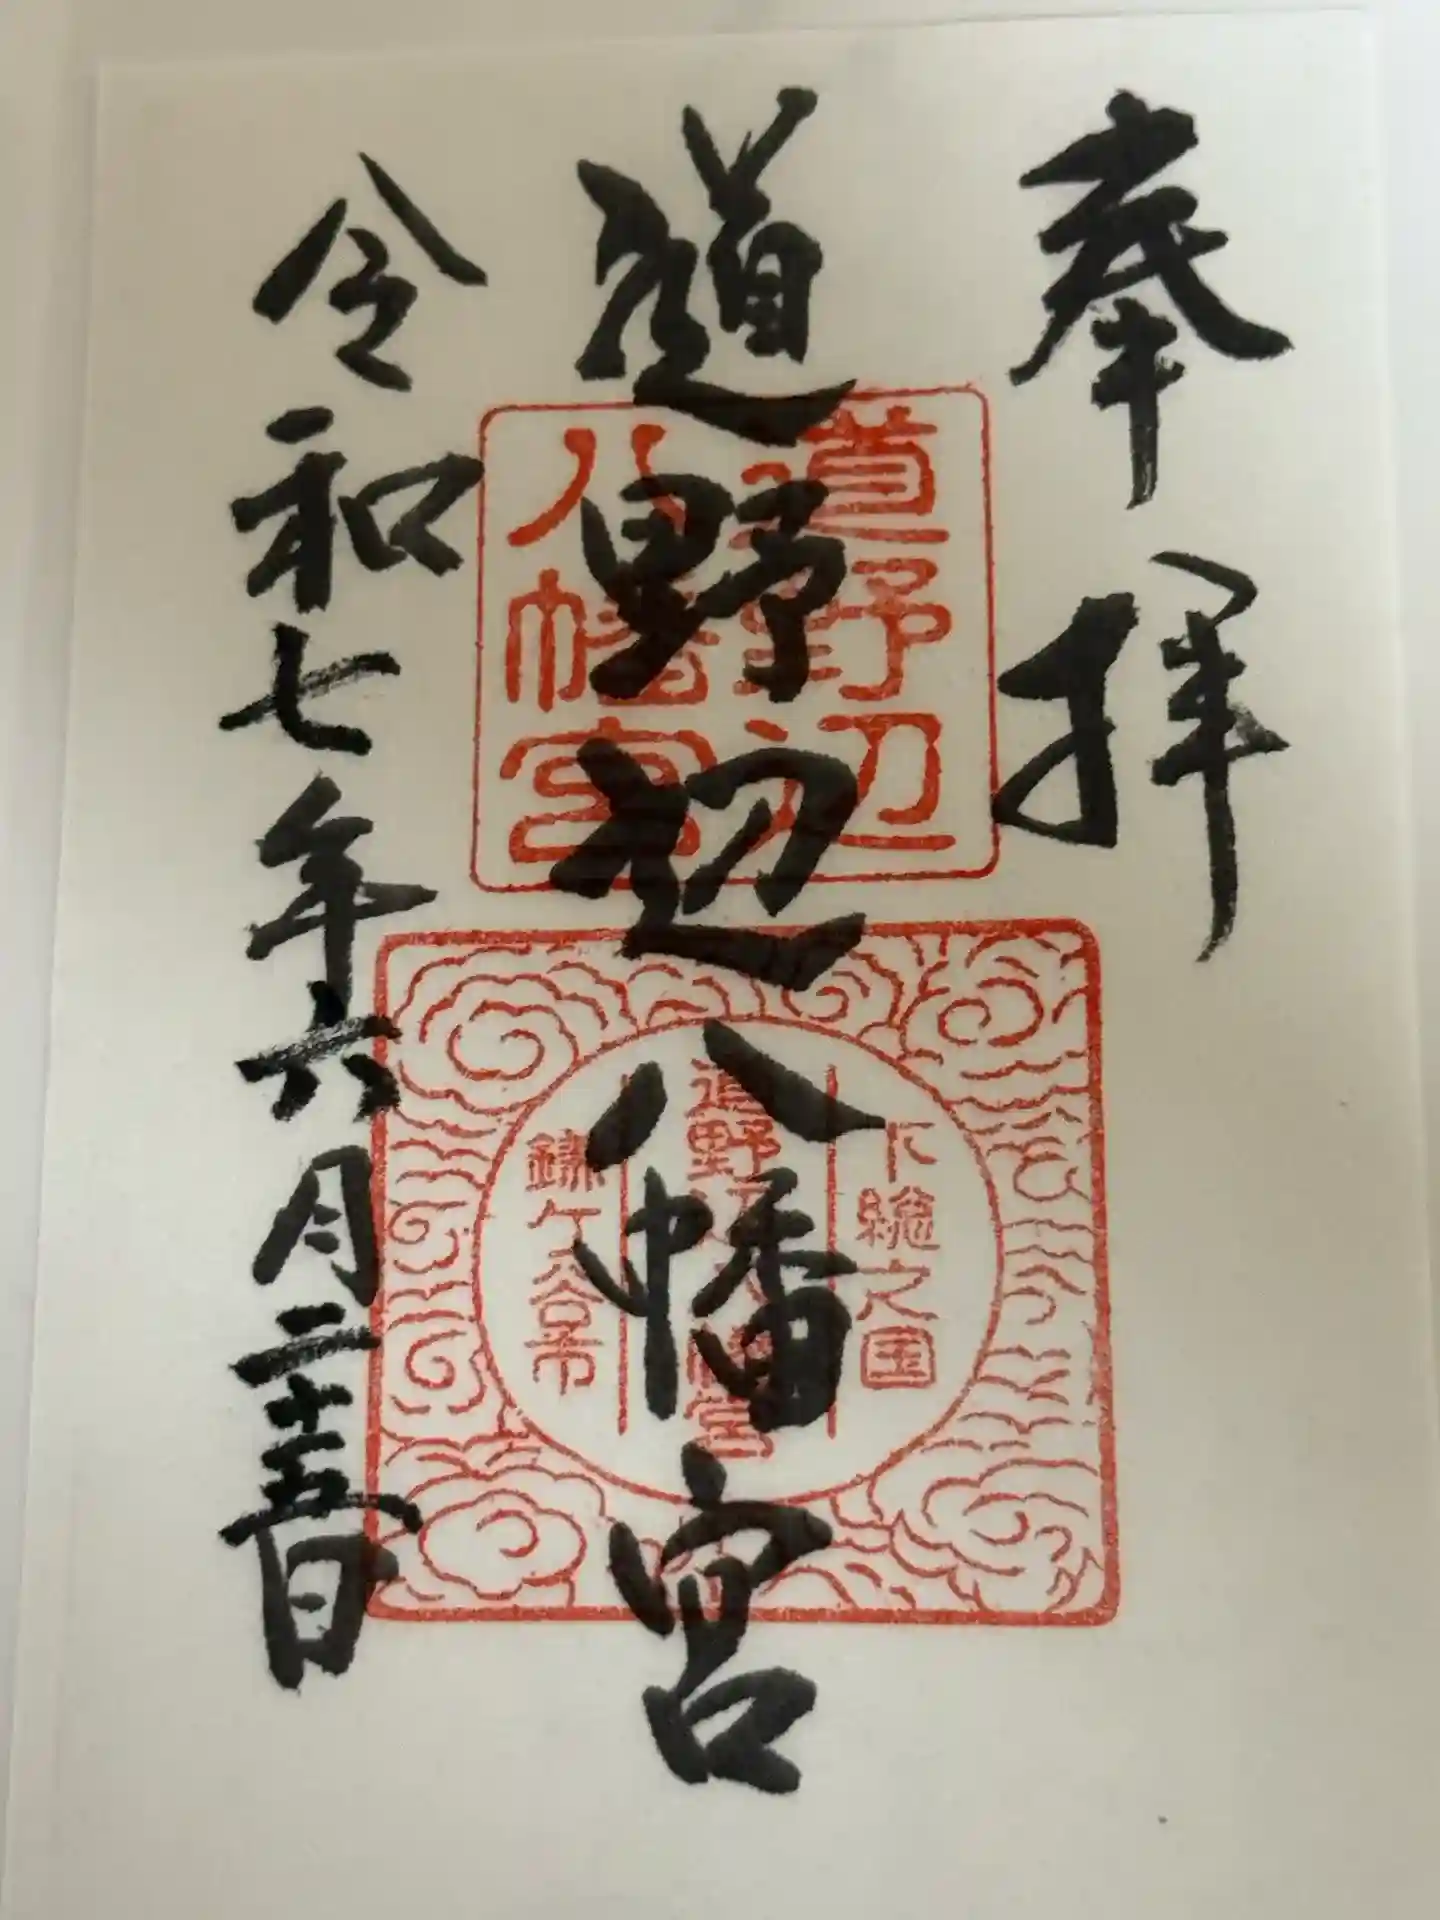 奉拝
道野辺八幡宮
令和七年六月二十五日
道野辺
八幡宮
下総之国
道野辺八幡宮
鎌ケ谷市